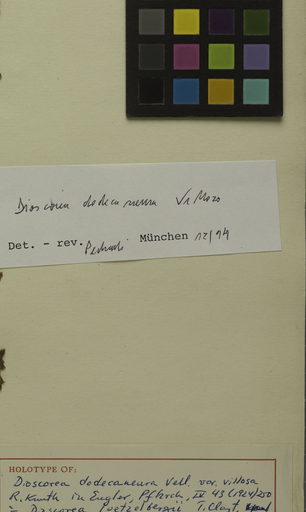 Dioscorea dodecaneura Vellozo
Det. - rev. Pedralli München 12/94
HOLOTYPE OF:
Dioscorea dodecaneura Vell. var. villosa
R. Knuth in Engler, Pflzrch, IV 43 (1924) 250
= Dioscorea